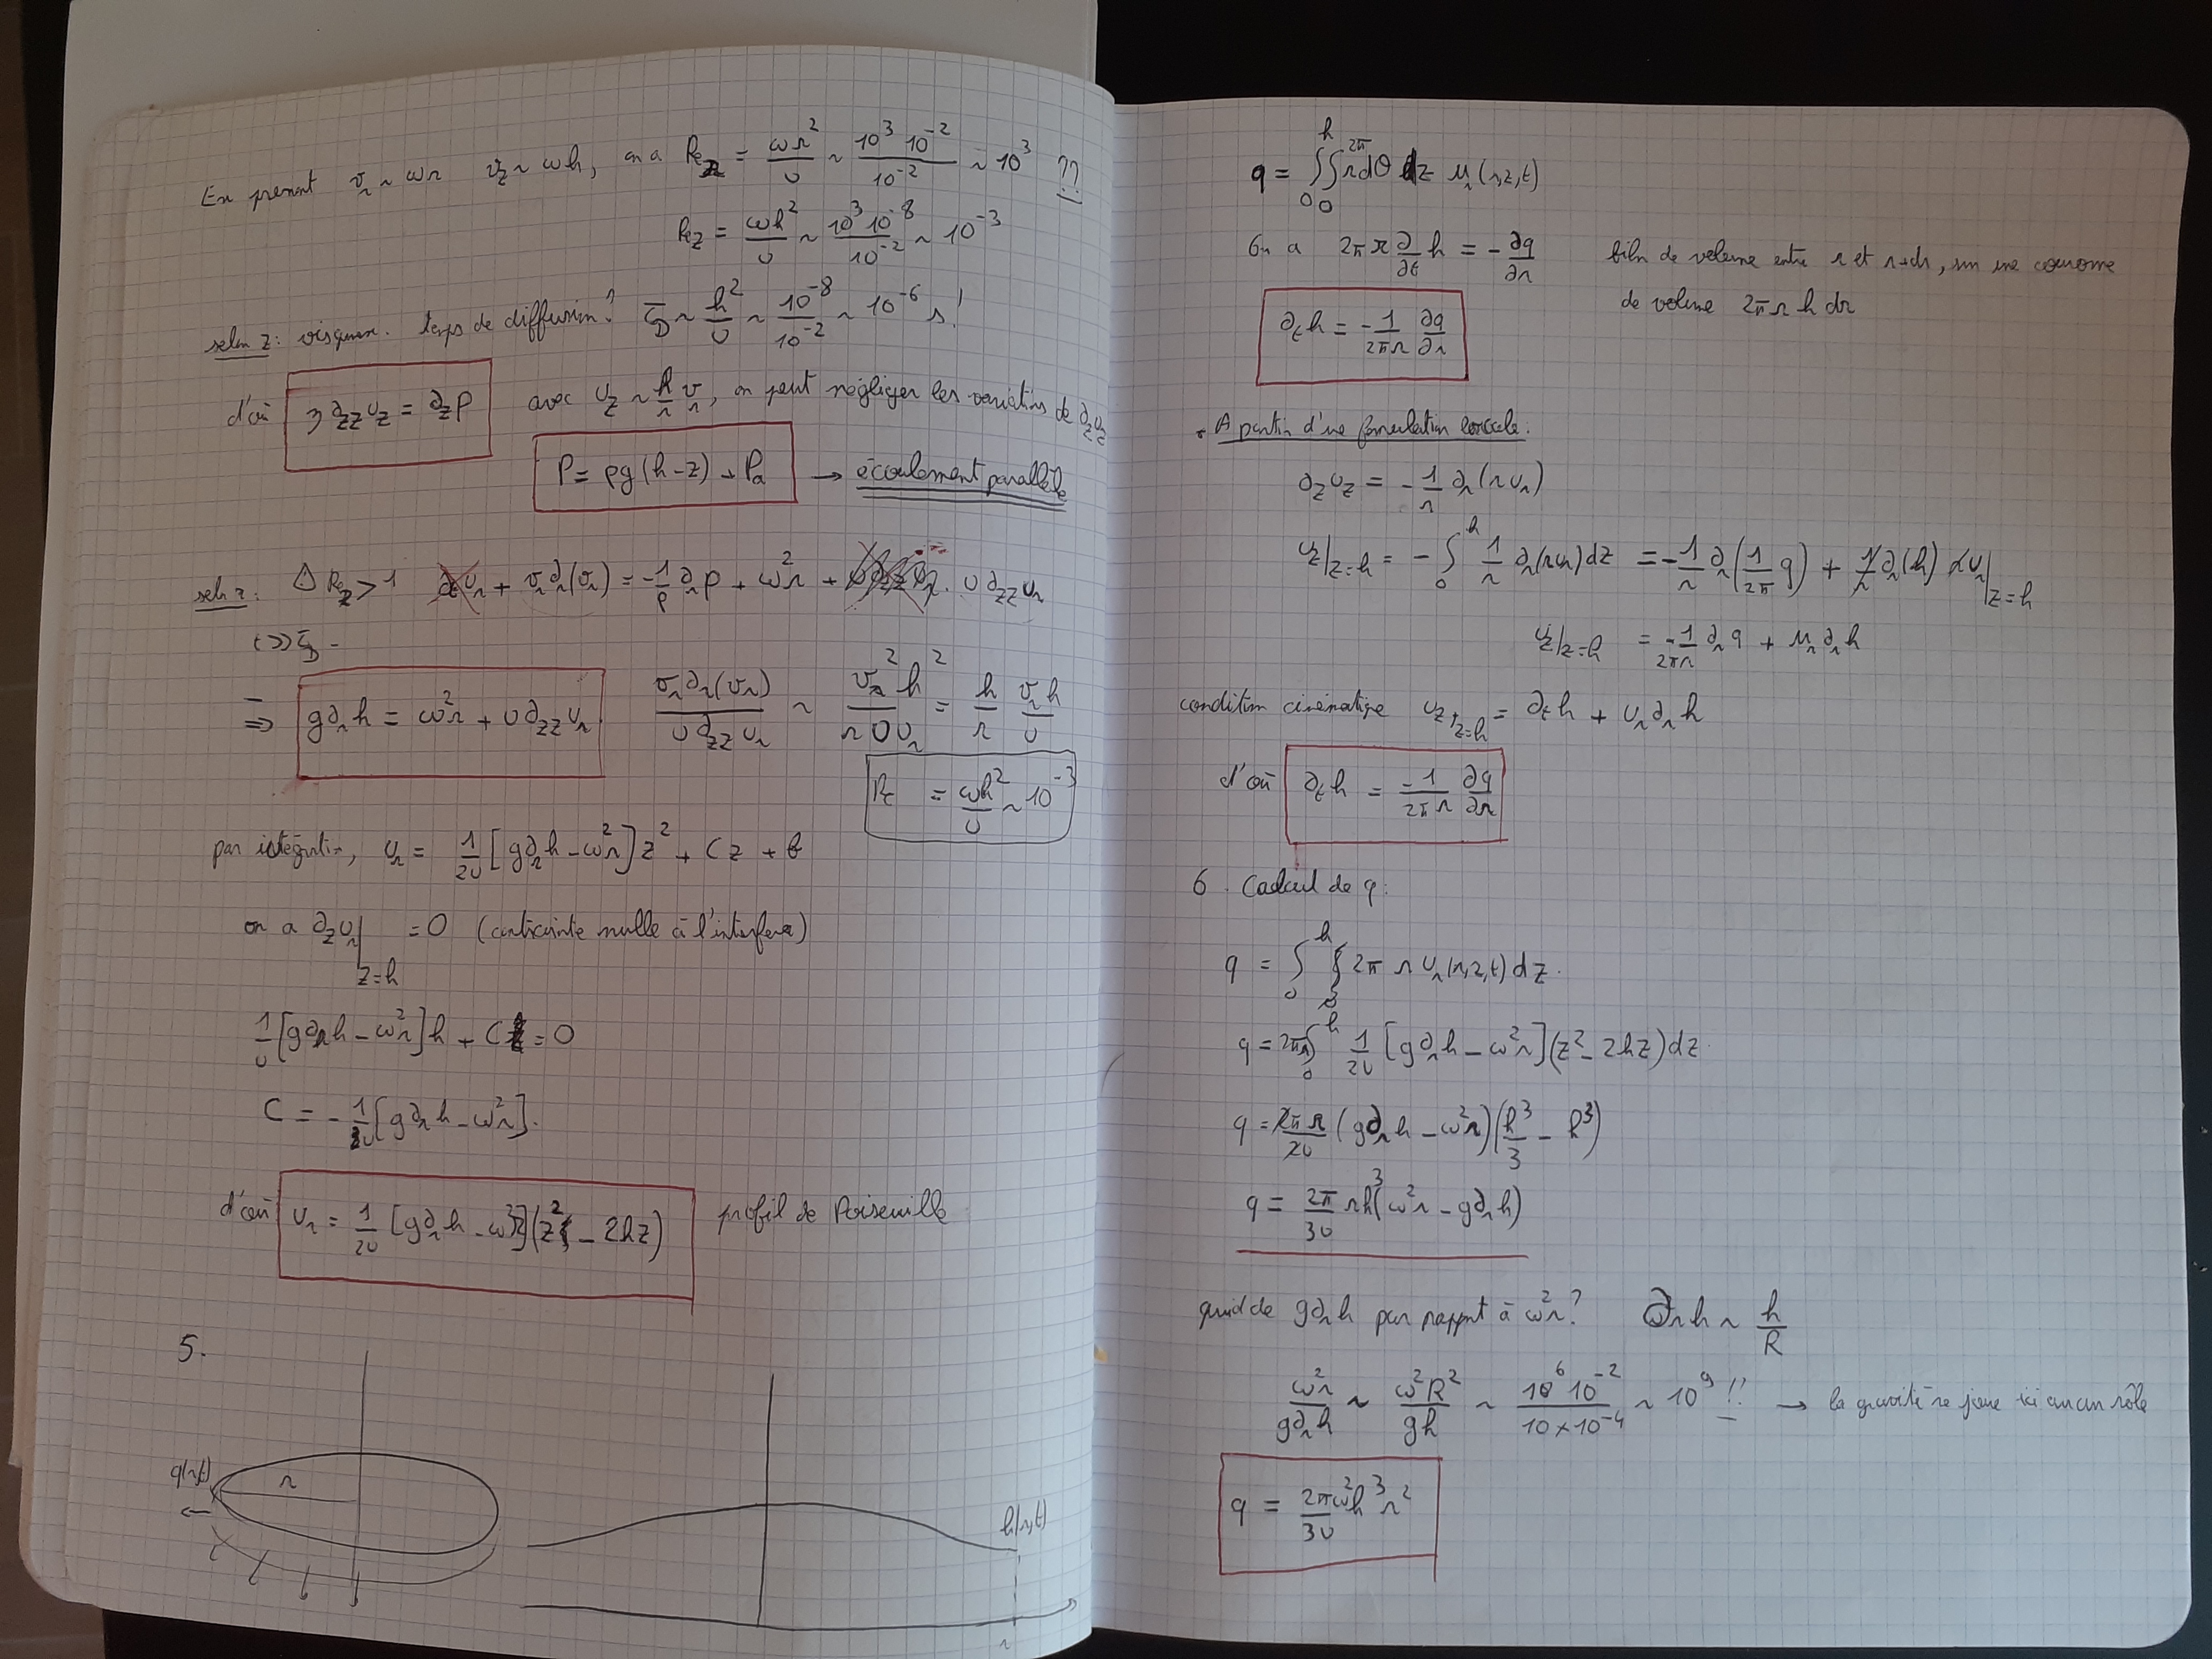 En prenant v_r ~ ωr v_z ~ ωh, on a Re_r = ωr²/υ ~ 10³ 10⁻²/10⁻² ~ 10³ ??
Re_z = ωh²/υ ~ 10³ 10⁻⁸/10⁻² ~ 10⁻³
selon z: visqueux. temps de diffusion? τ_D ~ h²/υ ~ 10⁻⁸/10⁻² ~ 10⁻⁶ s!
d'où η ∂_zz υ_z = ∂_z p avec υ_z ~ h/r v_r, on peut négliger les variations de ∂_z υ_z
P = ρg(h-z) + Pa → écoulement parallèle
selon r: ⚠ Re_r > 1 ∂_t υ_r + v_r ∂_r(v_r) = -1/ρ ∂_r p + ω²r + υ ∂_zz υ_r
t >> τ_D
⇒ g∂_r h = ω²r + υ ∂_zz υ_r v_r ∂_r(v_r)/υ ∂_zz υ_r ~ v_r² h²/r υ υ_r = h/r v_r h/υ
Re = ωh²/υ ~ 10⁻³
par intégration, υ_r = 1/2υ [g∂_r h - ω²r] z² + Cz + b
on a ∂_z υ_r|_z=h = 0 (contrainte nulle à l'interface)
1/υ [g∂_r h - ω²r] h + C = 0
C = -1/υ [g∂_r h - ω²r].
d'où υ_r = 1/2υ [g∂_r h - ω²r](z² - 2hz) profil de Poiseuille
5.
q(r,t) r h(r,t)
r
q = ∫₀^h ∫₀^2π r dθ dz u_r(r,z,t)
On a 2π r ∂/∂t h = -∂q/∂r bilan de volume entre r et r+dr, sur une couronne
de volume 2π r h dr
∂_t h = -1/2πr ∂q/∂r
• A partir d'une formulation locale:
∂_z υ_z = -1/r ∂_r(r υ_r)
υ_z|_z=h = -∫₀^h 1/r ∂_r(r υ_r) dz = -1/r ∂_r(1/2π q) + 1/r ∂_r(h) r υ_r|_z=h
υ_z|_z=h = -1/2πr ∂_r q + u_r ∂_r h
condition cinématique υ_z|_z=h = ∂_t h + υ_r ∂_r h
d'où ∂_t h = -1/2πr ∂q/∂r
6. Calcul de q:
q = ∫₀^h 2π r υ_r(r,z,t) dz.
q = 2πr ∫₀^h 1/2υ [g∂_r h - ω²r](z² - 2hz) dz.
q = 2πr/2υ (g∂_r h - ω²r)(h³/3 - h³)
q = 2π/3υ r h³(ω²r - g∂_r h)
quid de g∂_r h par rapport à ω²r? ∂_r h ~ h/R
ω²r/g∂_r h ~ ω²R²/gh ~ 10⁶ 10⁻²/10×10⁻⁴ ~ 10⁹ !! → la gravité ne joue ici aucun rôle
q = 2πω²h³r²/3υ